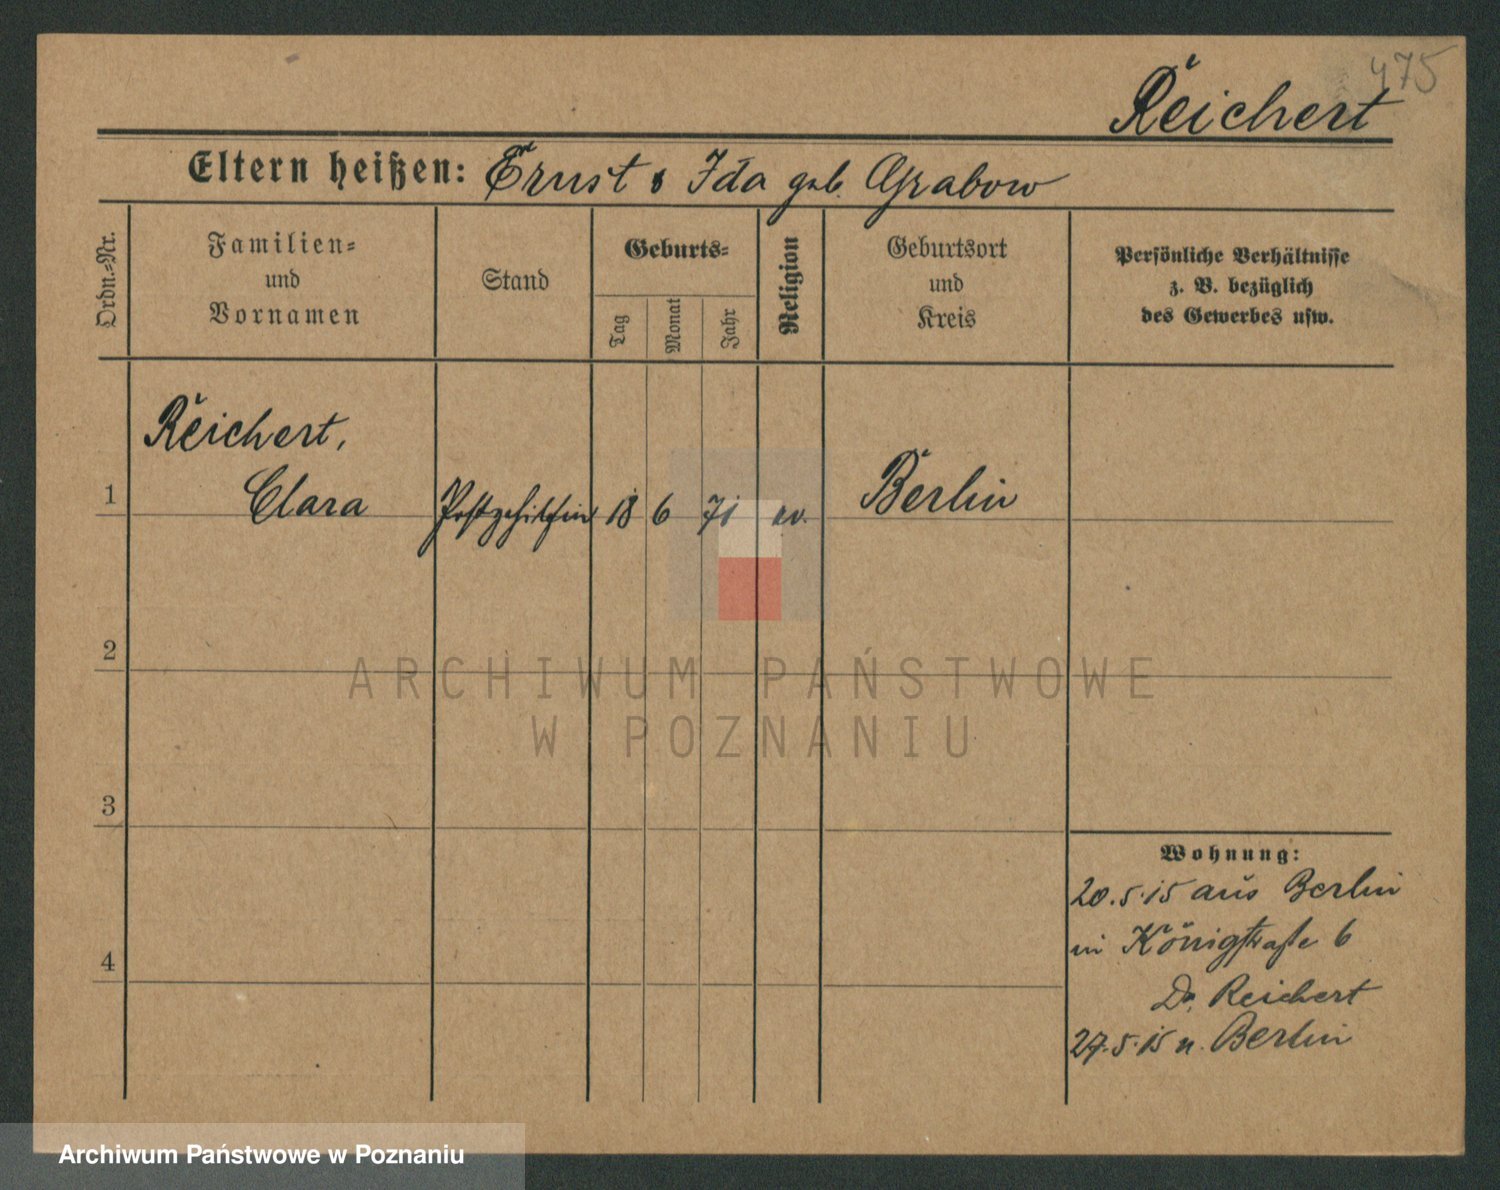 475
Reichert
Eltern heißen: Ernst & Ida geb. Grabow
Ordn.-Nr.
Familien-
und
Vornamen
Stand
Geburts-
Tag
Monat
Jahr
Religion
Geburtsort
und
Kreis
Persönliche Verhältnisse
z. B. bezüglich
des Gewerbes usw.
Reichert,
1 Clara Postgehilfin 18 6 71 ev. Berlin
2
3
4
Wohnung:
20.5.15 aus Berlin
in Königstraße 6
Dr. Reichert
27.5.15 n. Berlin
ARCHIWUM PAŃSTWOWE
W POZNANIU
Archiwum Państwowe w Poznaniu